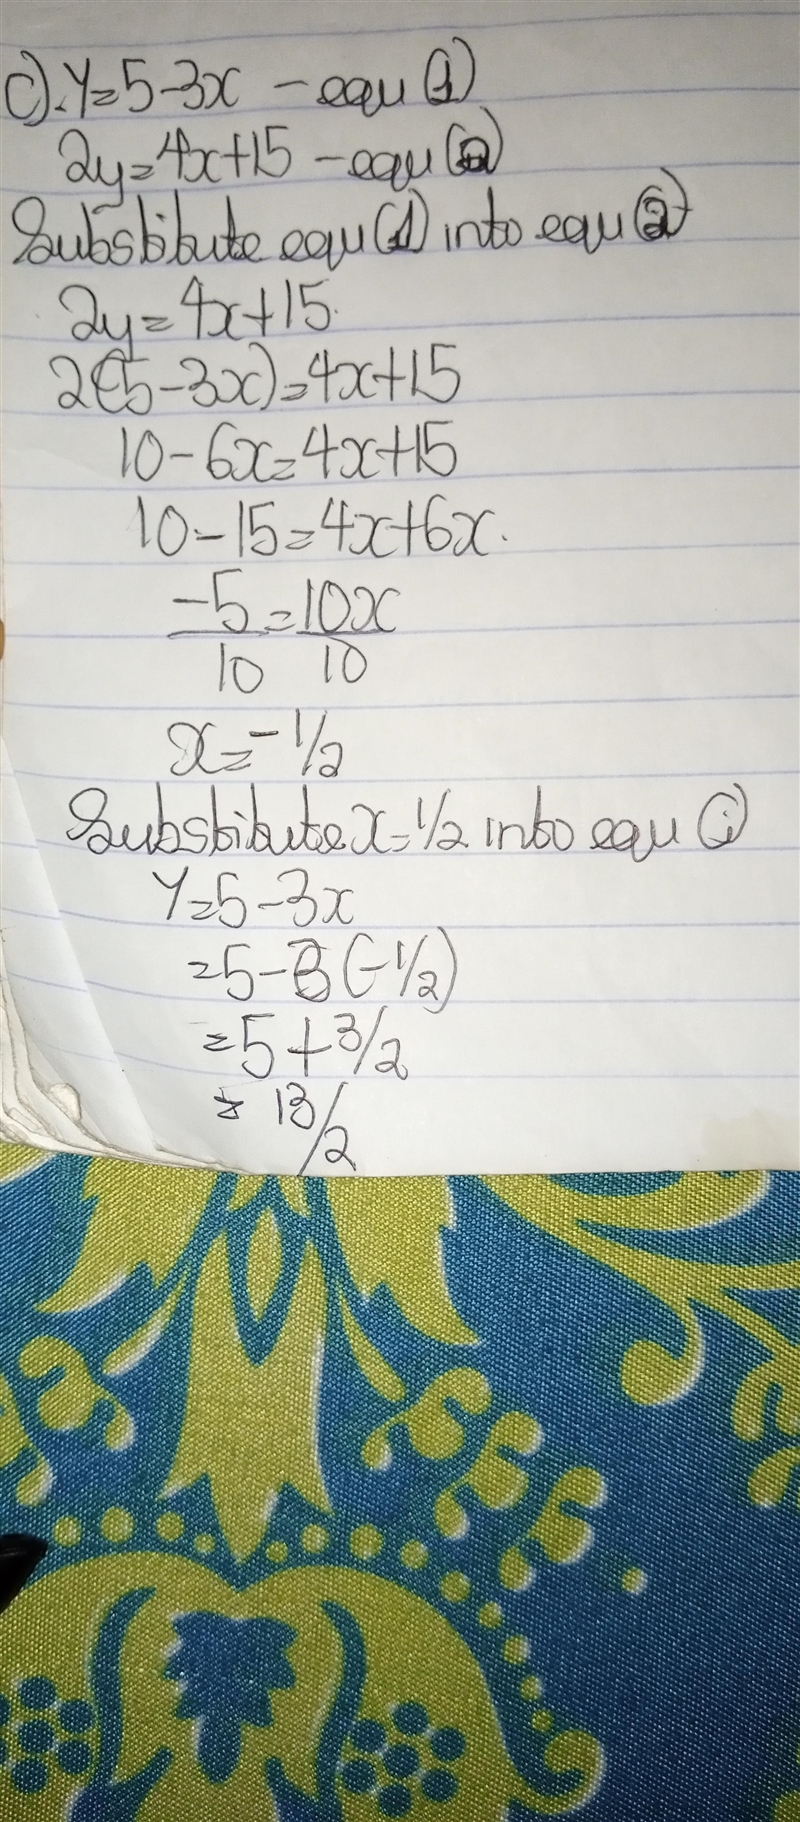 c). Y=5-3x - equ(1)
2y=4x+15 - equ(2)
Substitute equ(1) into equ(2)
2y=4x+15.
2(5-3x)=4x+15
10-6x=4x+15
10-15=4x+6x.
-5=10x
10 10
x=-1/2
Substitute x=1/2 into equ(i)
Y=5-3x
=5-3(-1/2)
=5+3/2
=13/2